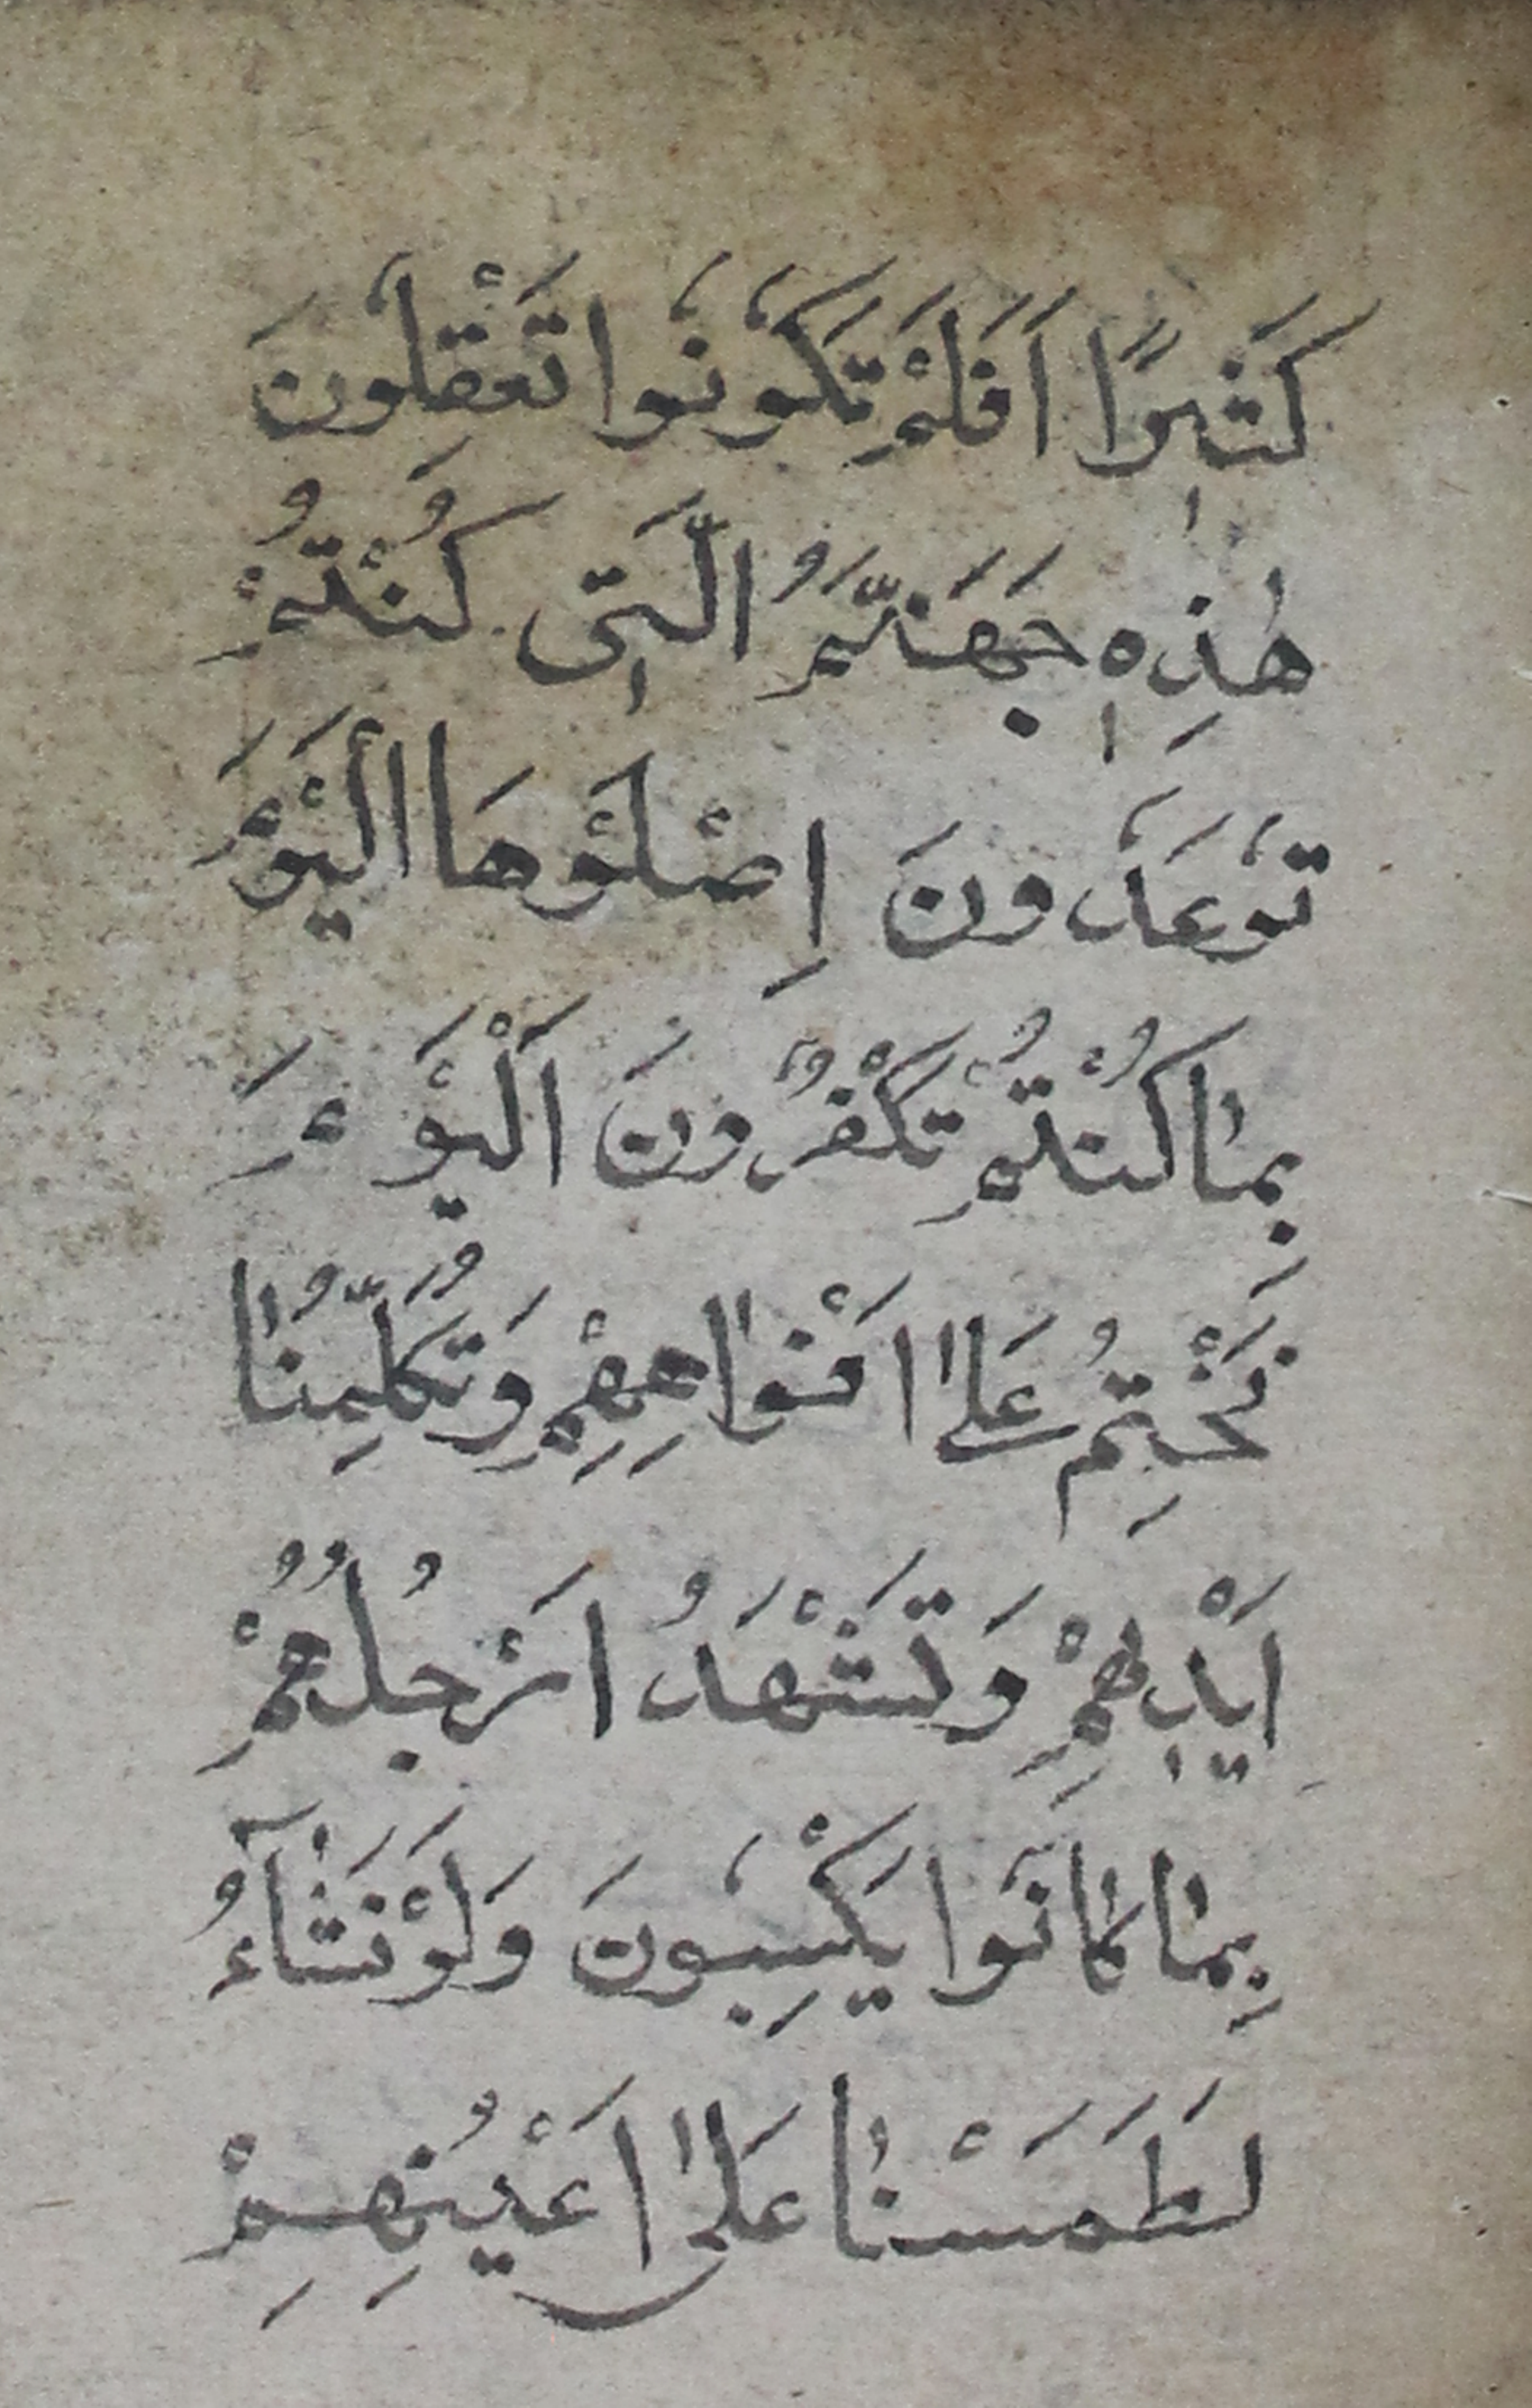 كَثٖيرًا اَفَلَمْ تَكُونُوا تَعْقِلُونَ
هٰذِهٖ جَهَنَّمُ الَّتٖى كُنْتُمْ
تُوعَدُونَ اِصْلَوْهَا الْيَوْمَ
بِمٰا كُنْتُمْ تَكْفُرُونَ اَلْيَوْمَ
نَخْتِمُ عَلٰى اَفْوٰاهِهِمْ وَتُكَلِّمُنٰا
اَيْدٖيهِمْ وَتَشْهَدُ اَرْجُلُهُمْ
بِمٰا كٰانُوا يَكْسِبُونَ وَلَوْ نَشٰٓاءُ
لَطَمَسْنٰا عَلٰى اَعْيُنِهِمْ